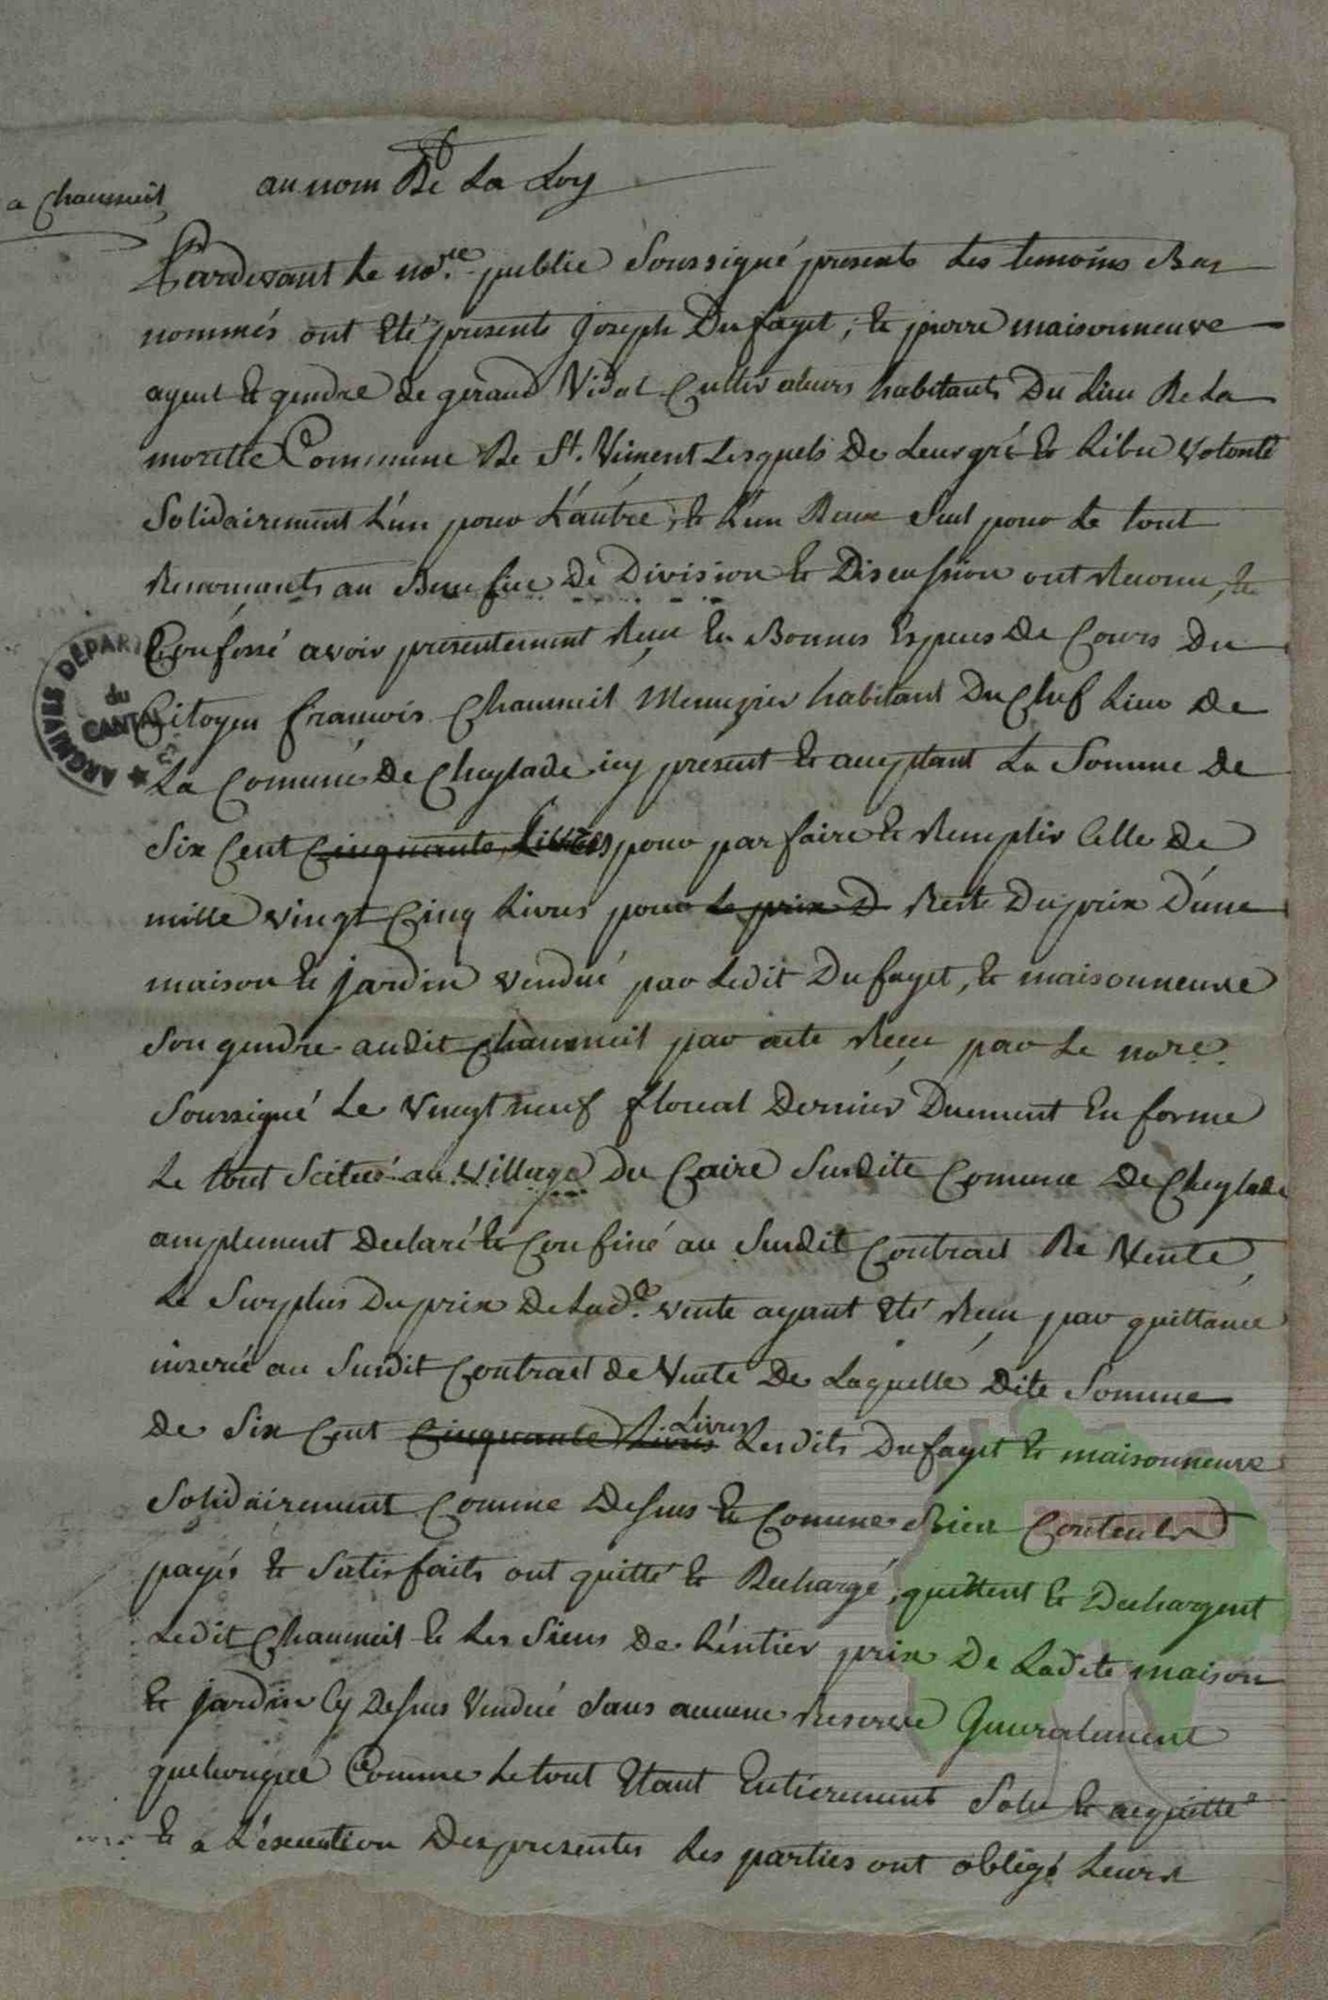 a Chaumeil
au nom De La Loy
Pardevant le no.re public Soussigné presents les temoins Bas
nommés ont Eté presents joseph Dufayet, & pierre maisonneuve
ayent & gendre de geraud Vidal Cultivateurs habitants Du Lieu De La
morette Commune De St. Viment Lesquels De Leur gré & Libre Volonté
Solidairement L'un pour L'autre, & L'un Deux Seul pour Le tout
Renonçants au Benefice De Division & Discussion ont Reconu, &
Confessé avoir presentement Reçu En Bonnes Especes De Cours Du
Citoyen francois Chaumeil Menuzier habitant Du Chef Lieu De
La Comune De Cheylade icy présent & aceptant La Somme De
Six Cent Cinquante Livres pour parfaire & Remplir Celle De
mille vingt Cinq Livres pour Le prix D Reste Du prix D'une
maison & jardin vendue par Ledit Dufayet, & maisonneuve
Son gendre audit Chaumeil par acte Reçu par Le nore.
Soussigné Le Vingt neuf floreal Dernier Duement En forme
Le tout Scitué au Village Du Caire Susdite Comune De Cheylade
amplement Declaré & Confiné au Susdit Contract De Vente,
Le Surplus Du prix De Lad.e vente ayant Eté Reçu par quittance
inserée au Susdit Contract de Vente De Laquelle Dite Somme
De Six Cent Cinquante Livres Livres Lesdits Dufayet & maisonneuve
Solidairement Comme Dessus & Comme Bien Contents
payés & Satisfaits ont quitté & Dechargé, quittent & Dechargent
Ledit Chaumeil & Les Siens De L'entier prix De Ladite maison
& jardin Cy Dessus Vendue Sans aucune Reserve Generalement
quelconque Comme Le tout Etant Entierement Solu & acquitté
& a L'execution Des presentes Les parties ont obligé Leurs
ARCHIVES DEPART
du
CANTAL